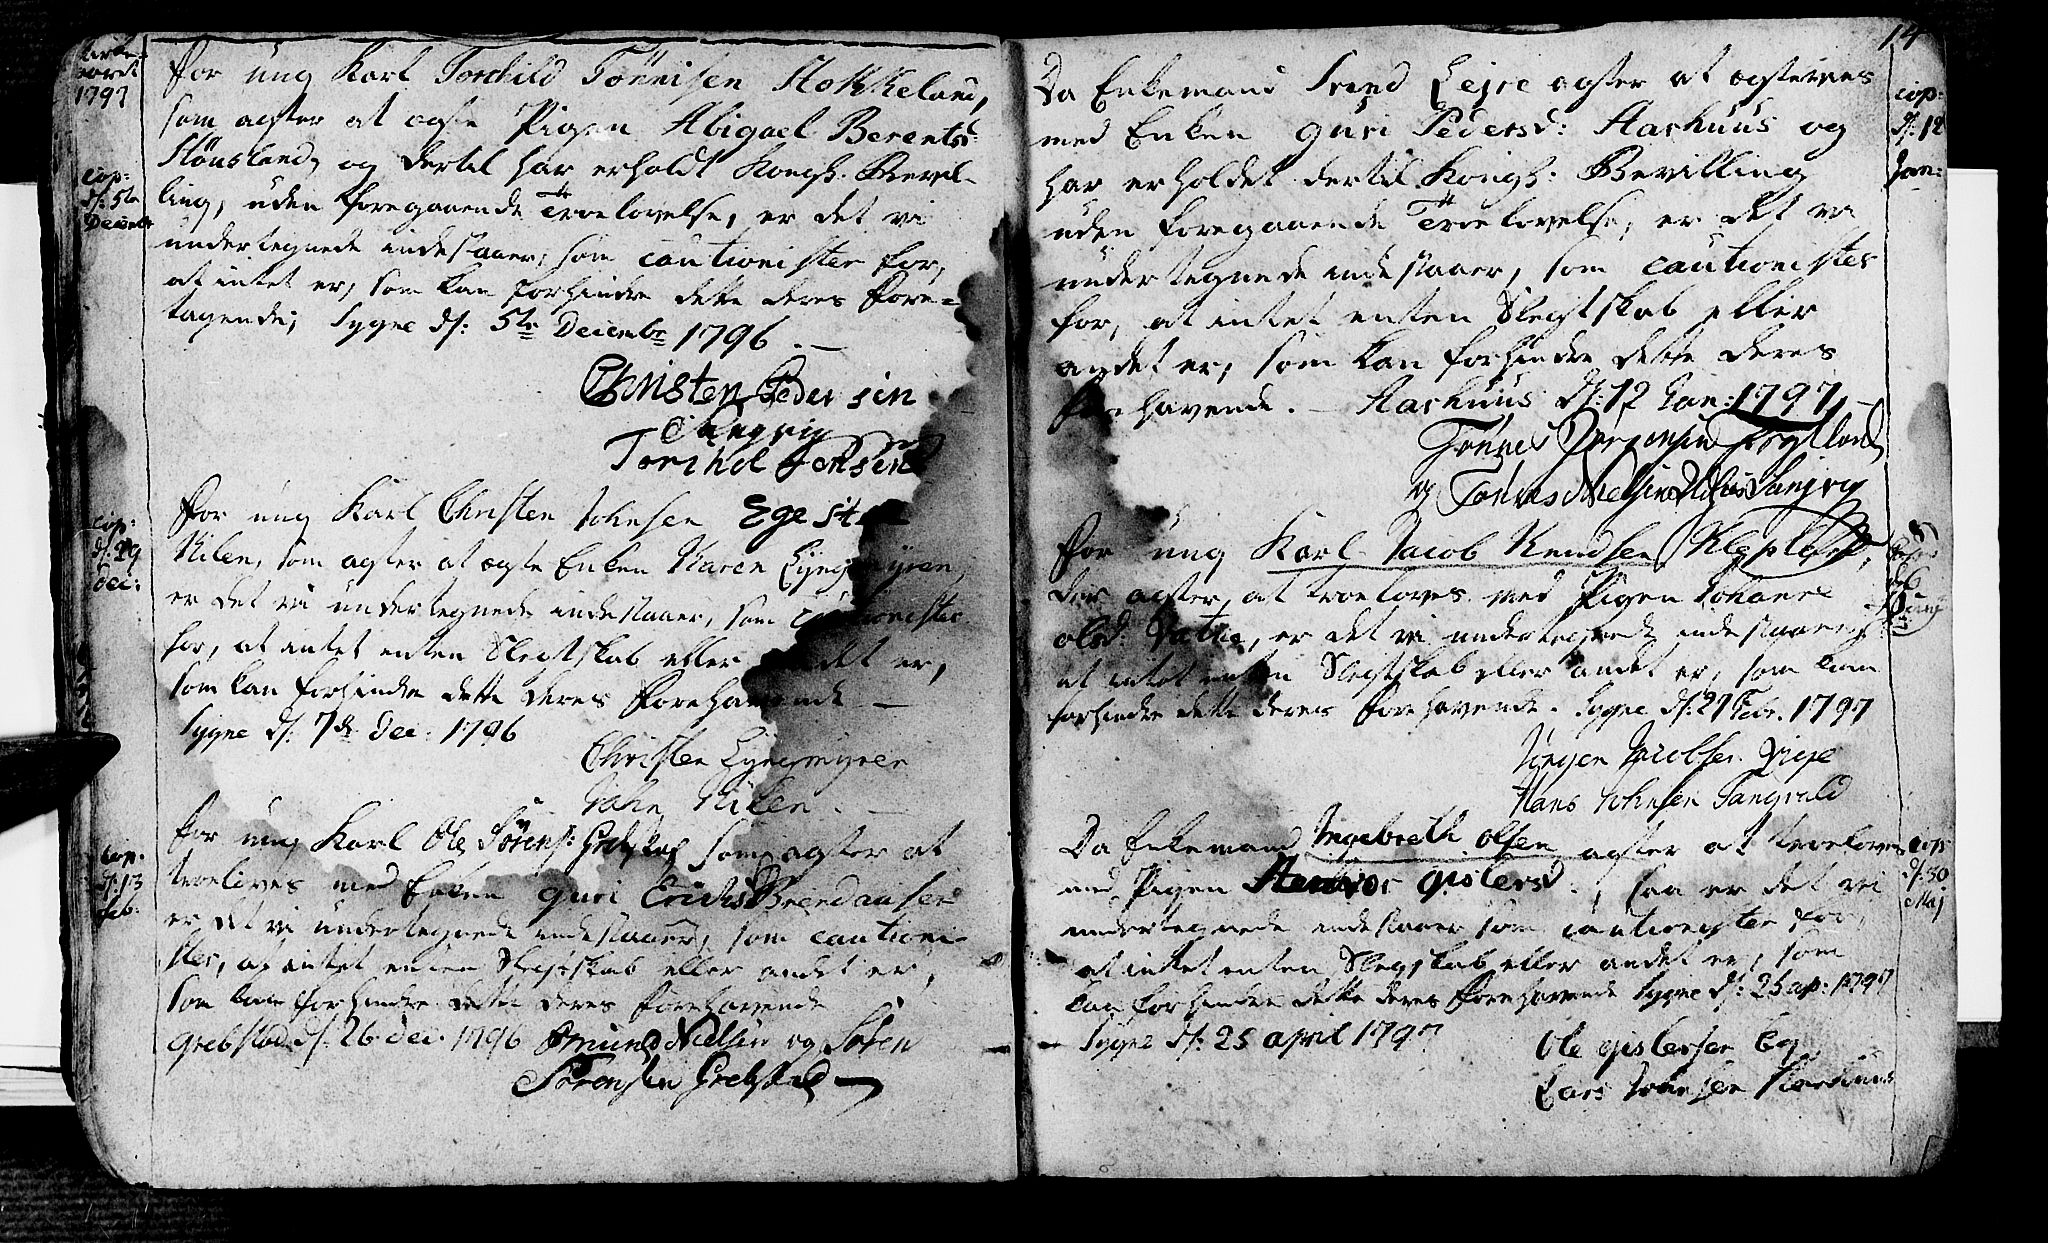 Kirke-
aaret
1797
for ung Karl Torchild Tönnisen Stokkeland,
som agter at ægte Pigen Abigael Berentsd:
Stöusland, og dertil har erholdt Kongl: Bevil-
cop:
d: 5te
Decembr
ling, uden foregaaende Troelovelse, er det vi
undertegnede indestaaer, som cautionister for,
at intet er, som kan forhindre dette deres fore-
tagende; Sygne d: 5te Decembr 1796. —
Christen Pedersen
Tangvig
Torchel Jensen
cop:
d: 29
Dec:
For ung Karl Christen Johnsen
Kilen, som agter at ægte Enken Karen Lyngmyren,
er det vi undertegnede indestaaer, som cautionister
for, at intet enten Slegtskab eller andet er,
som kan forhindre dette deres forehavende —
Sygne d: 7de Dec: 1796
Christen Lyngmyren
John Kilen. —
cop.
d: 13
feb:
for ung Karl Ole Sörens: Grebstad som agter at
troeloves med Enken Guri
er det vi undertegnede indestaaer, som cautioni-
ster, at intet enten Slegtskab eller andet er,
som kan forhindre dette deres forehavende
Grebstad d: 26 dec. 1796 Amund Nielsen og Sören
Sörensen Grebstad —
14
Da Enkemand Trond Lejre agter at ægtevies
med Enken Guri Pedersd: Aarhuus og
har erholdet dertil Kongl: Bevilling
cop:
d: 12
Jan:
uden foregaaende Troelovelse, er det vi
undertegnede indestaaer, som cautionister
for, at intet enten Slegtskab eller
andet er, som kan forhindre dette deres
forehavende. — Aarhuus d: 12 Jan: 1797 —
Tönnes Jörgensen
og Tönnes Nielsen Tangvig
For ung Karl Jacob Knudsen Klepland,
der agter at troeloves med Pigen Johanne
olsd: Vatne, er det vi undertegnede indestaaer,
at intet enten Slegtskab eller andet er, som kan
forhindre dette deres forehavende. Sygne d: 27 Febr. 1797
Jörgen Jacobsen
Hans Johnsen Tangvald
Da Enkemand Ingebreth Olsen agter at troeloves
cop:
d: 30
Maj
med Pigen Gislersd:, saa er det vi
undertegnede indestaaer som cautionister for,
at intet enten Slegtskab eller andet er, som
kan forhindre dette deres forehavende Sygne d: 25 ap: 1797
Sygne d: 25 april 1797
Ole Gislersen Eg
Lars Johnsen